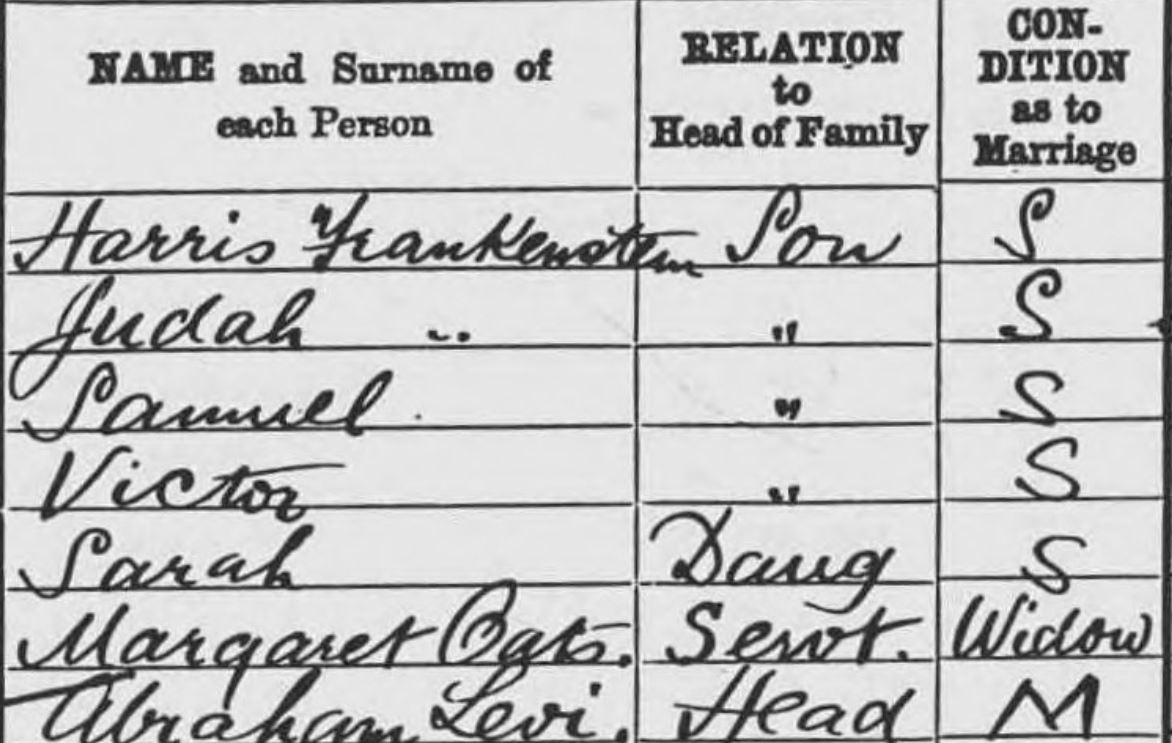 NAME and Surname of each Person RELATION to Head of Family CONDITION as to Marriage
Harris Frankenstein Son S
Judah " " S
Samuel " S
Victor " S
Sarah Daug S
Margaret Oats. Servt. Widow
Abraham Levi. Head M